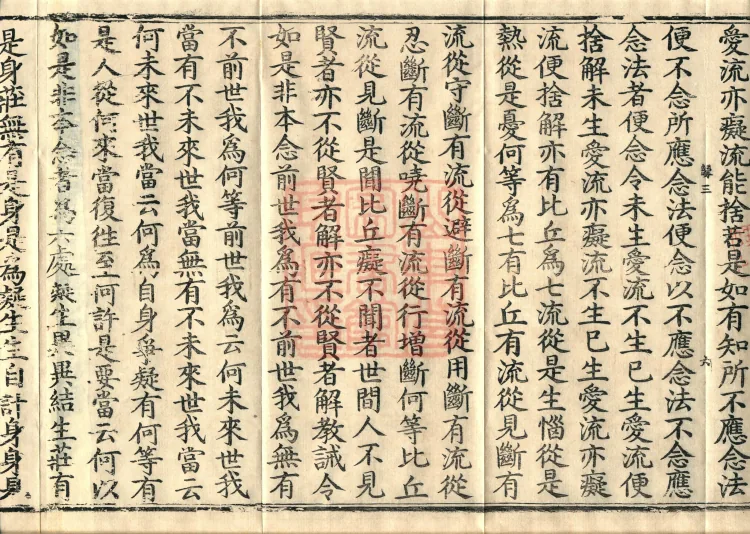 愛流亦癡流能捨若是如有知所不應念法
馨三
六
便不念所應念法便念以不應念法不念應
念法者便念令未生愛流不生已生愛流便
捨解未生愛流亦癡流不生已生愛流亦癡
流便捨解亦有比丘爲七流從是生惱從是
熱從是憂何等爲七有比丘有流從見斷有
流從守斷有流從避斷有流從用斷有流從
忍斷有流從嘵斷有流從行增斷何等比丘
流從見斷是聞比丘癡不聞者世間人不見
賢者亦不從賢者解亦不從賢者解教誡令
如是非本念前世我爲有不前世我爲無有
不前世我爲何等前世我爲云何未來世我
當有不未來世我當無有不未來世我當云
何未來世我當云何爲自身爭疑有何等有
是人從何來當復徃至何許是要當云何以
如是非本念者爲六處疑生異異結生莊有
是身莊無有是身是爲疑生生自計身身見